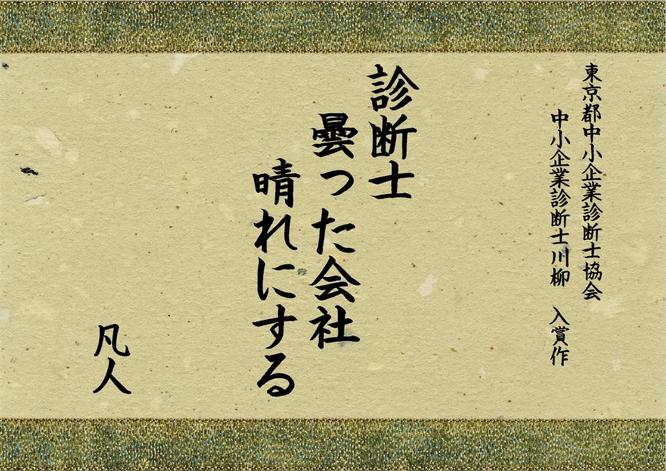 東京都中小企業診断士協会
中小企業診断士川柳　入賞作
診断士
曇った会社
晴れにする
凡人